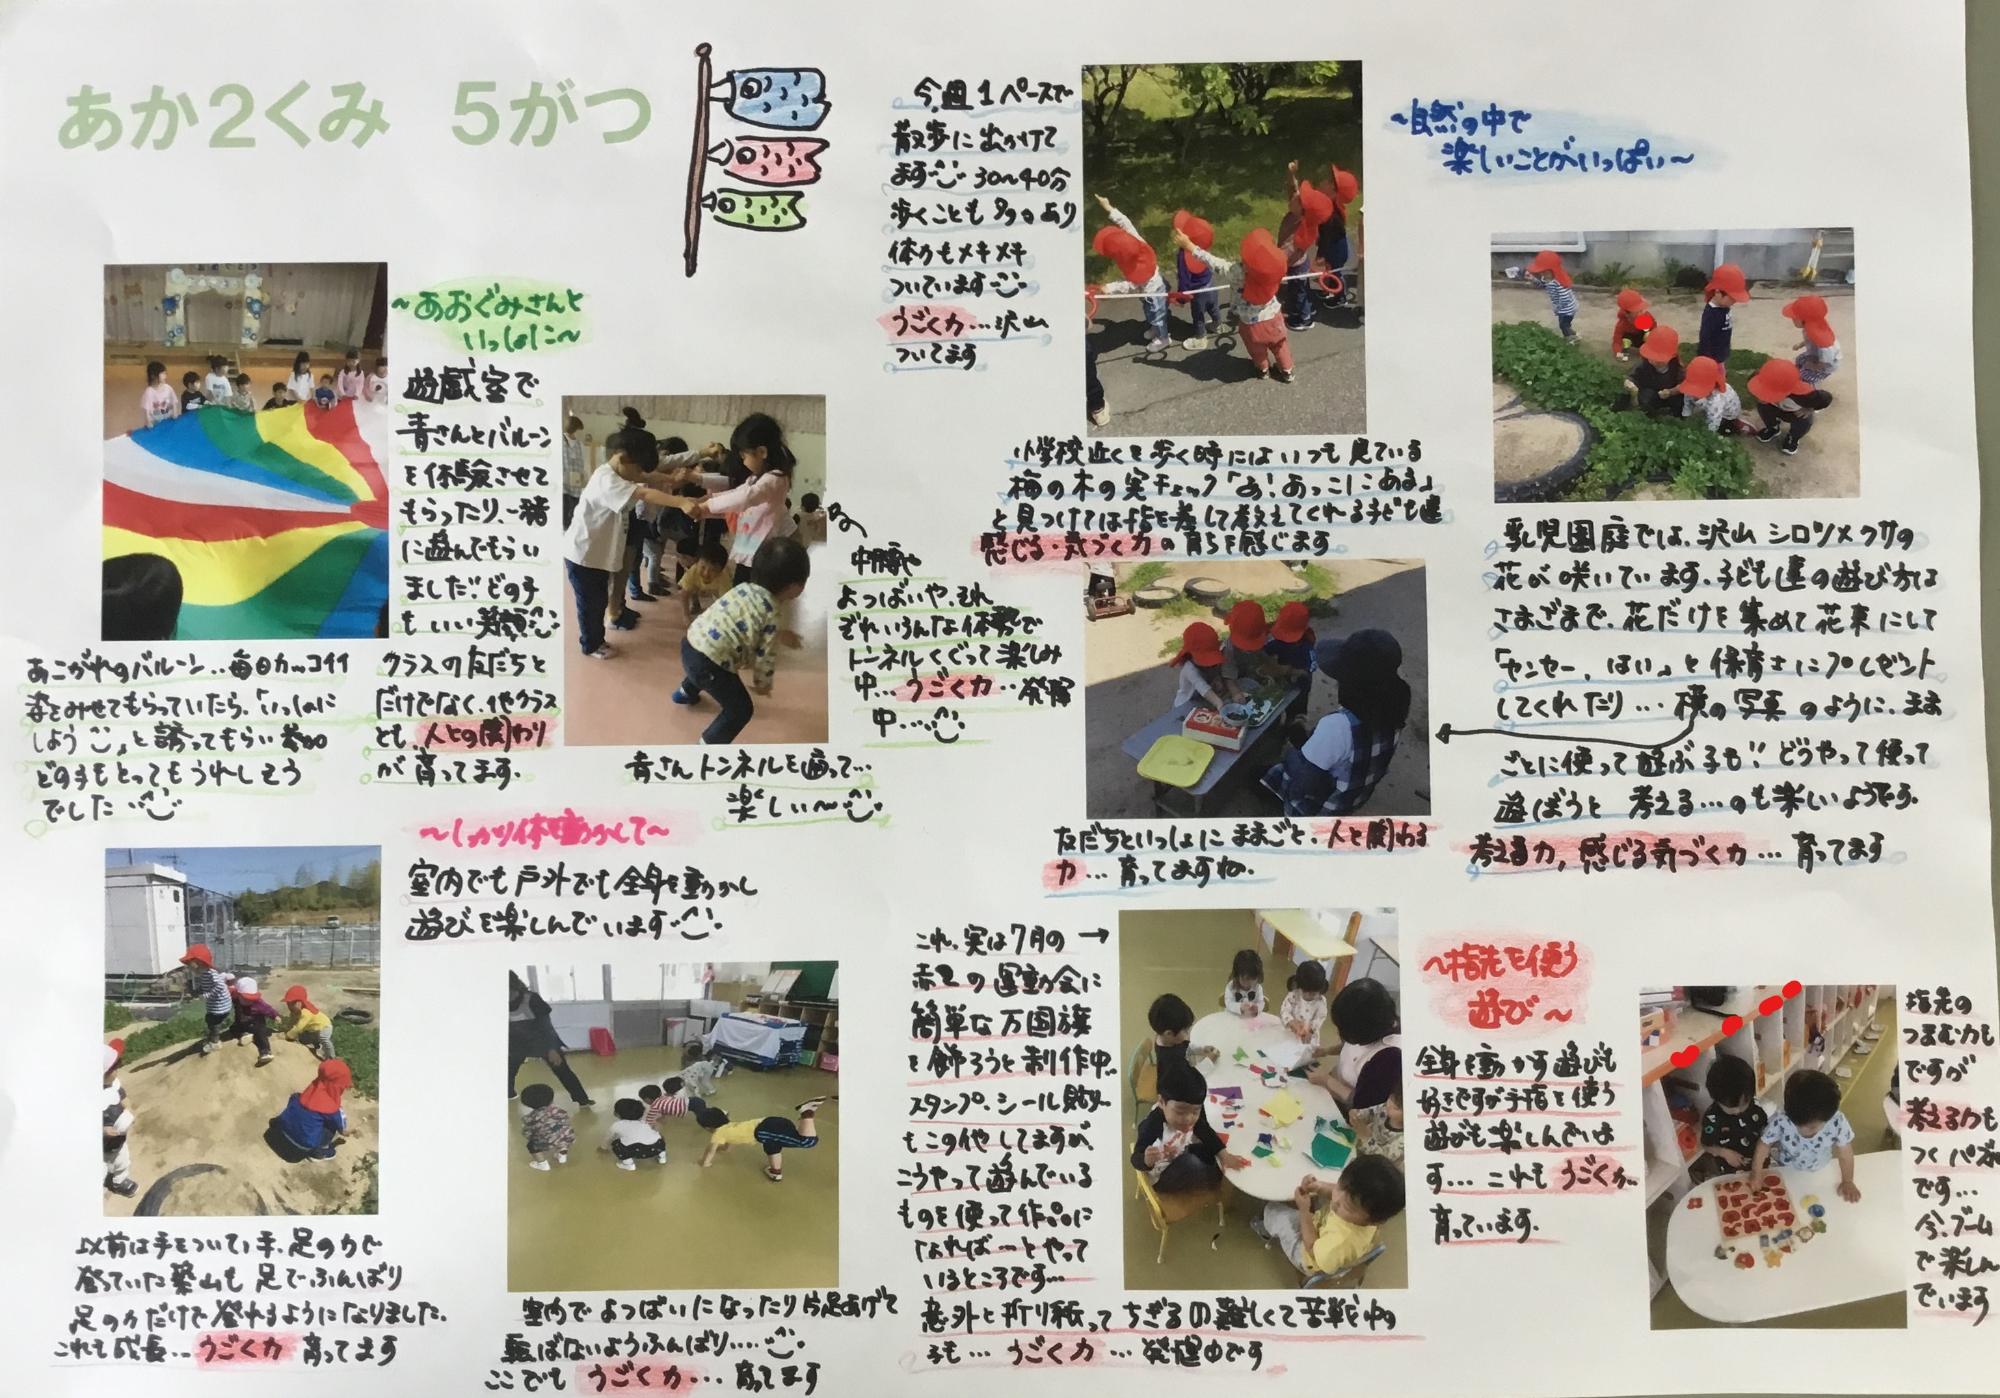 あか2くみ 5がつ
~あおぐみさんと
いっしょに~
遊戯室で
青さんとバルーン
を体験させて
もらったり、一緒
に遊んでもらい
ました!!どの子
もいい笑顔
あこがれのバルーン..毎日カッコイイ
姿をみせてもらっていたら、「いっしょに
しよう」と誘ってもらい参加
どの子もとってもうれしそう
でした
クラスの友だちと
だけでなく、他クラス
とも、人との関わり
が育ってます.
中腰や
よつばいや、それ
ぞれいろんな体勢で
トンネルくぐって楽しみ
中...うごく力...発揮
中....
青さんトンネルを通って...
楽しい~
~しっかり体を動かして~
室内でも戸外でも全身を動かし
遊びを楽しんでいます
以前は手をついて手、足の力で
登っていた築山も足でふんばり
足の力だけで登れるようになりました.
これも成長...うごく力 育ってます
室内でよつばいになったり片足あげて
転ばないようふんばり.....
ここでもうごく力...育ってます
今、週1ペースで
散歩に出かけて
ます 30~40分
歩くことも多々あり
体力もメキメキ
ついています
うごく力...沢山
ついてます
小学校近くを歩く時にはいつも見ている
梅の木の実チェック「あ!あっこにこあるよ」
と見つけては指を差して教えてくれる子ども達
感じる・気づく力の育ちを感じます
~自然の中で
楽しいことがいっぱい~
乳児園庭では、沢山シロツメクサの
花が咲いています.子ども達の遊び方は
さまざまで、花だけを集めて花束にして
「センセー、はい」と保育士にプレゼント
してくれたり...横の写真のように、まま
ごとに使って遊ぶ子も!!どうやって使って
遊ぼうと考える...のも楽しいようです.
考える力、感じる気づく力...育ってます
友だちといっしょにままごと、人と関わる
力...育ってますね.
これ、実は7月の→
赤2の運動会に
簡単な万国旗
を飾ろうと制作中..
スタンプ、シール貼り..
もこの他してますが、
こうやって遊んでいる
ものを使って作品に
なれば...とやって
いるところです...
意外と折り紙ってちぎるの難しくて苦戦中の
子も...うごく力...発揮中です
~指先を使う
遊び~
全身を動かす遊びも
好きですが手指を使う
遊びも楽しんでいま
す...これもうごく力..
育っています.
指先の
つまむ力も
ですが
考える力も
つくパズル
です...
今、ブーム
で楽しん
でいます